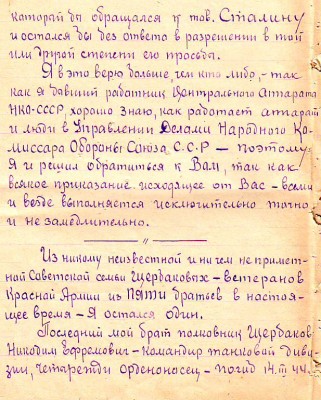 который бы обращался к тов. Сталину
и остался бы без ответа в разрешении в той
или другой степени его просьбы.
Я в это верю больше, чем кто либо, – так
как я бывший работник Центрального Аппарата
НКО-СССР, хорошо знаю, как работает аппарат
и люди в Управлении Делами Народного Ко-
миссара Обороны Союза С.С.Р – поэтому-
Я и решил обратиться к Вам, так как
всякое приказание исходящее от Вас – всеми
и везде выполняется исключительно точно
и не замедлительно.
Из никому неизвестной и ни чем не примет-
ной Советской семьи Щербаковых – ветеранов
Красной Армии из ПЯТИ братьев в настоя-
щее время – Я остался один.
Последний мой брат полковник Щербаков
Никодим Ефремович – командир танковой диви-
зии, четырежды Орденоносец – погиб 14.III 44.